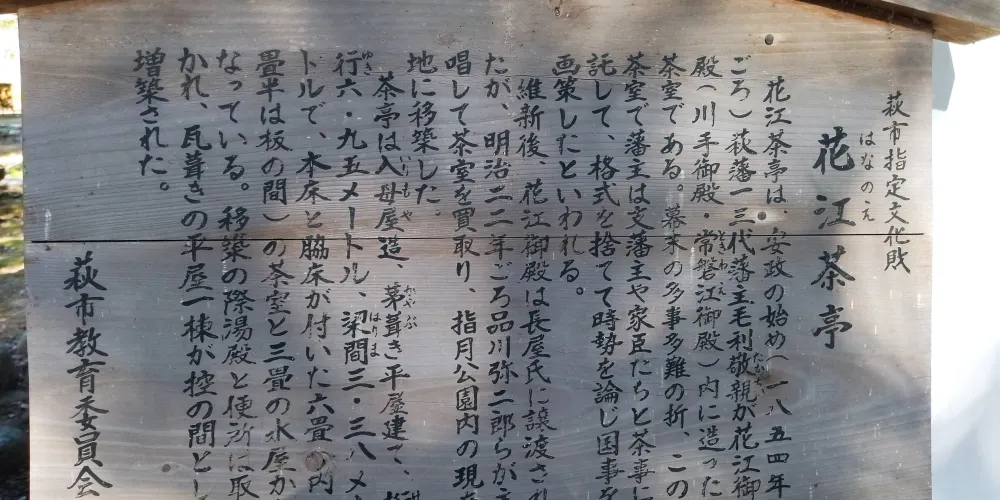 萩市指定文化財
はなのえ
花江茶亭
花江茶亭は、安政の始め(一八五四年
ごろ)萩藩一三代藩主毛利敬親が花江御
たかちか
殿(川手御殿・常磐江御殿)内に造った
ときわえ
茶室である。幕末の多事多難の折、この
茶室で藩主は支藩主や家臣たちと茶事に
託して、格式を捨てて時勢を論じ国事を
画策したといわれる。
維新後、花江御殿は長屋氏に譲渡され
たが、明治二二年ごろ品川弥二郎らが
唱して茶室を買取り、指月公園内の現
地に移築した。
茶亭は入母屋造、茅葺き平屋建て、
いりもや
かやぶ
行六・九五メートル、梁間三・三八メ
ゆき
はりま
トルで、本床と脇床が付いた六畳の内
畳半は板の間)の茶室と三畳の水屋か
なっている。移築の際湯殿と便所は取
かれ、瓦葺きの平屋一棟が控の間とし
増築された。
萩市教育委員会